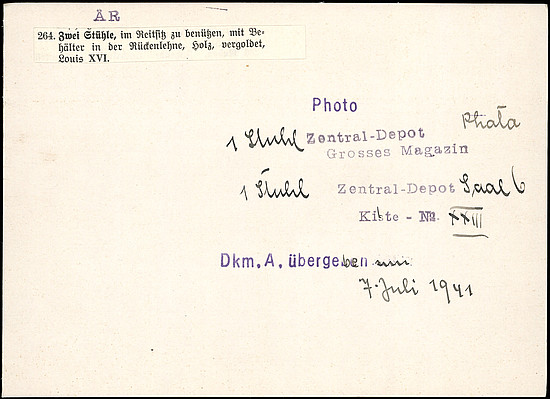 ÄR
264. Zwei Stühle, im Reitsitz zu benützen, mit Be-
hälter in der Rückenlehne, Holz, vergoldet,
Louis XVI.
Photo
Photo
1 Stuhl Zentral-Depot
Grosses Magazin
1 Stuhl Zentral-Depot Saal 6
Kiste - No. XXIII
Dkm. A. übergeben
7. Juli 1941